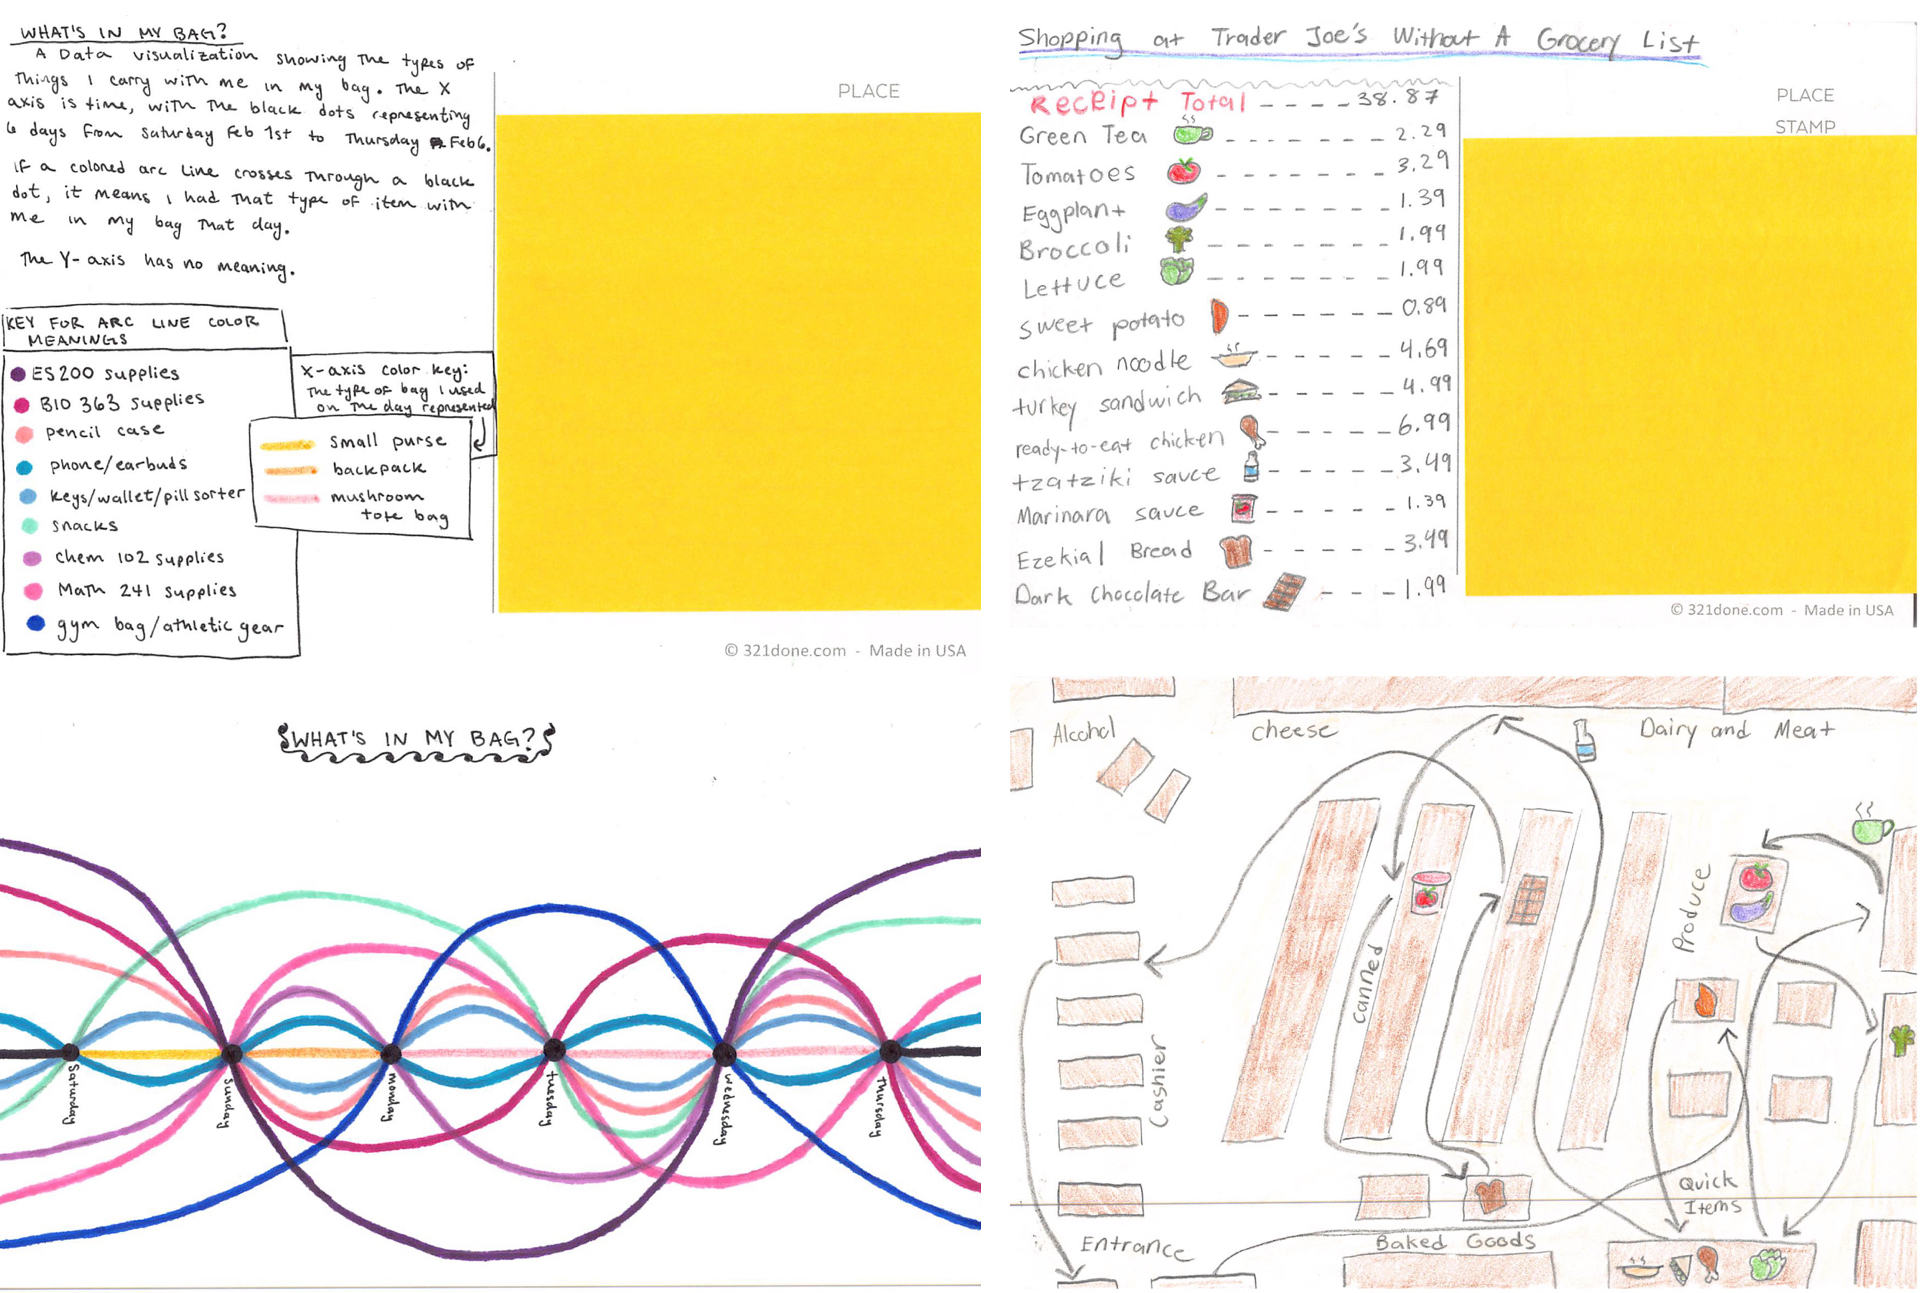 WHAT'S IN MY BAG?
A Data visualization showing the types of
things I carry with me in my bag. The X
axis is time, with the black dots representing
6 days from Saturday Feb 1st to Thursday Feb 6.
if a colored arc line crosses through a black
dot, it means I had that type of item with
me in my bag that day.
The Y-axis has no meaning.
KEY FOR ARC LINE COLOR
MEANINGS
ES200 supplies
BIO 363 supplies
pencil case
phone/earbuds
keys/wallet/pill sorter
snacks
chem 102 supplies
Math 241 supplies
gym bag/athletic gear
X-axis color key:
The type of bag I used
on the day represented
small purse
backpack
mushroom
tote bag
PLACE
© 321done.com - Made in USA
Shopping at Trader Joe's Without A Grocery List
Receipt Total ---- 38.87
Green Tea ------- 2.29
Tomatoes ------- 3.29
Eggplant ------- 1.39
Broccoli ------- 1.99
Lettuce ------- 1.99
sweet potato ------ 0.89
chicken noodle ------ 4.69
turkey sandwich ------ 4.99
ready-to-eat chicken ----- 6.99
tzatziki sauce ----- 3.49
Marinara sauce ------ 1.39
Ezekial Bread ----- 3.49
Dark Chocolate Bar --- 1.99
PLACE
STAMP
© 321done.com - Made in USA
WHAT'S IN MY BAG?
Saturday
Sunday
monday
tuesday
wednesday
Thursday
Alcohol
cheese
Dairy and Meat
Produce
canned
Cashier
Quick
Items
Entrance
Baked Goods